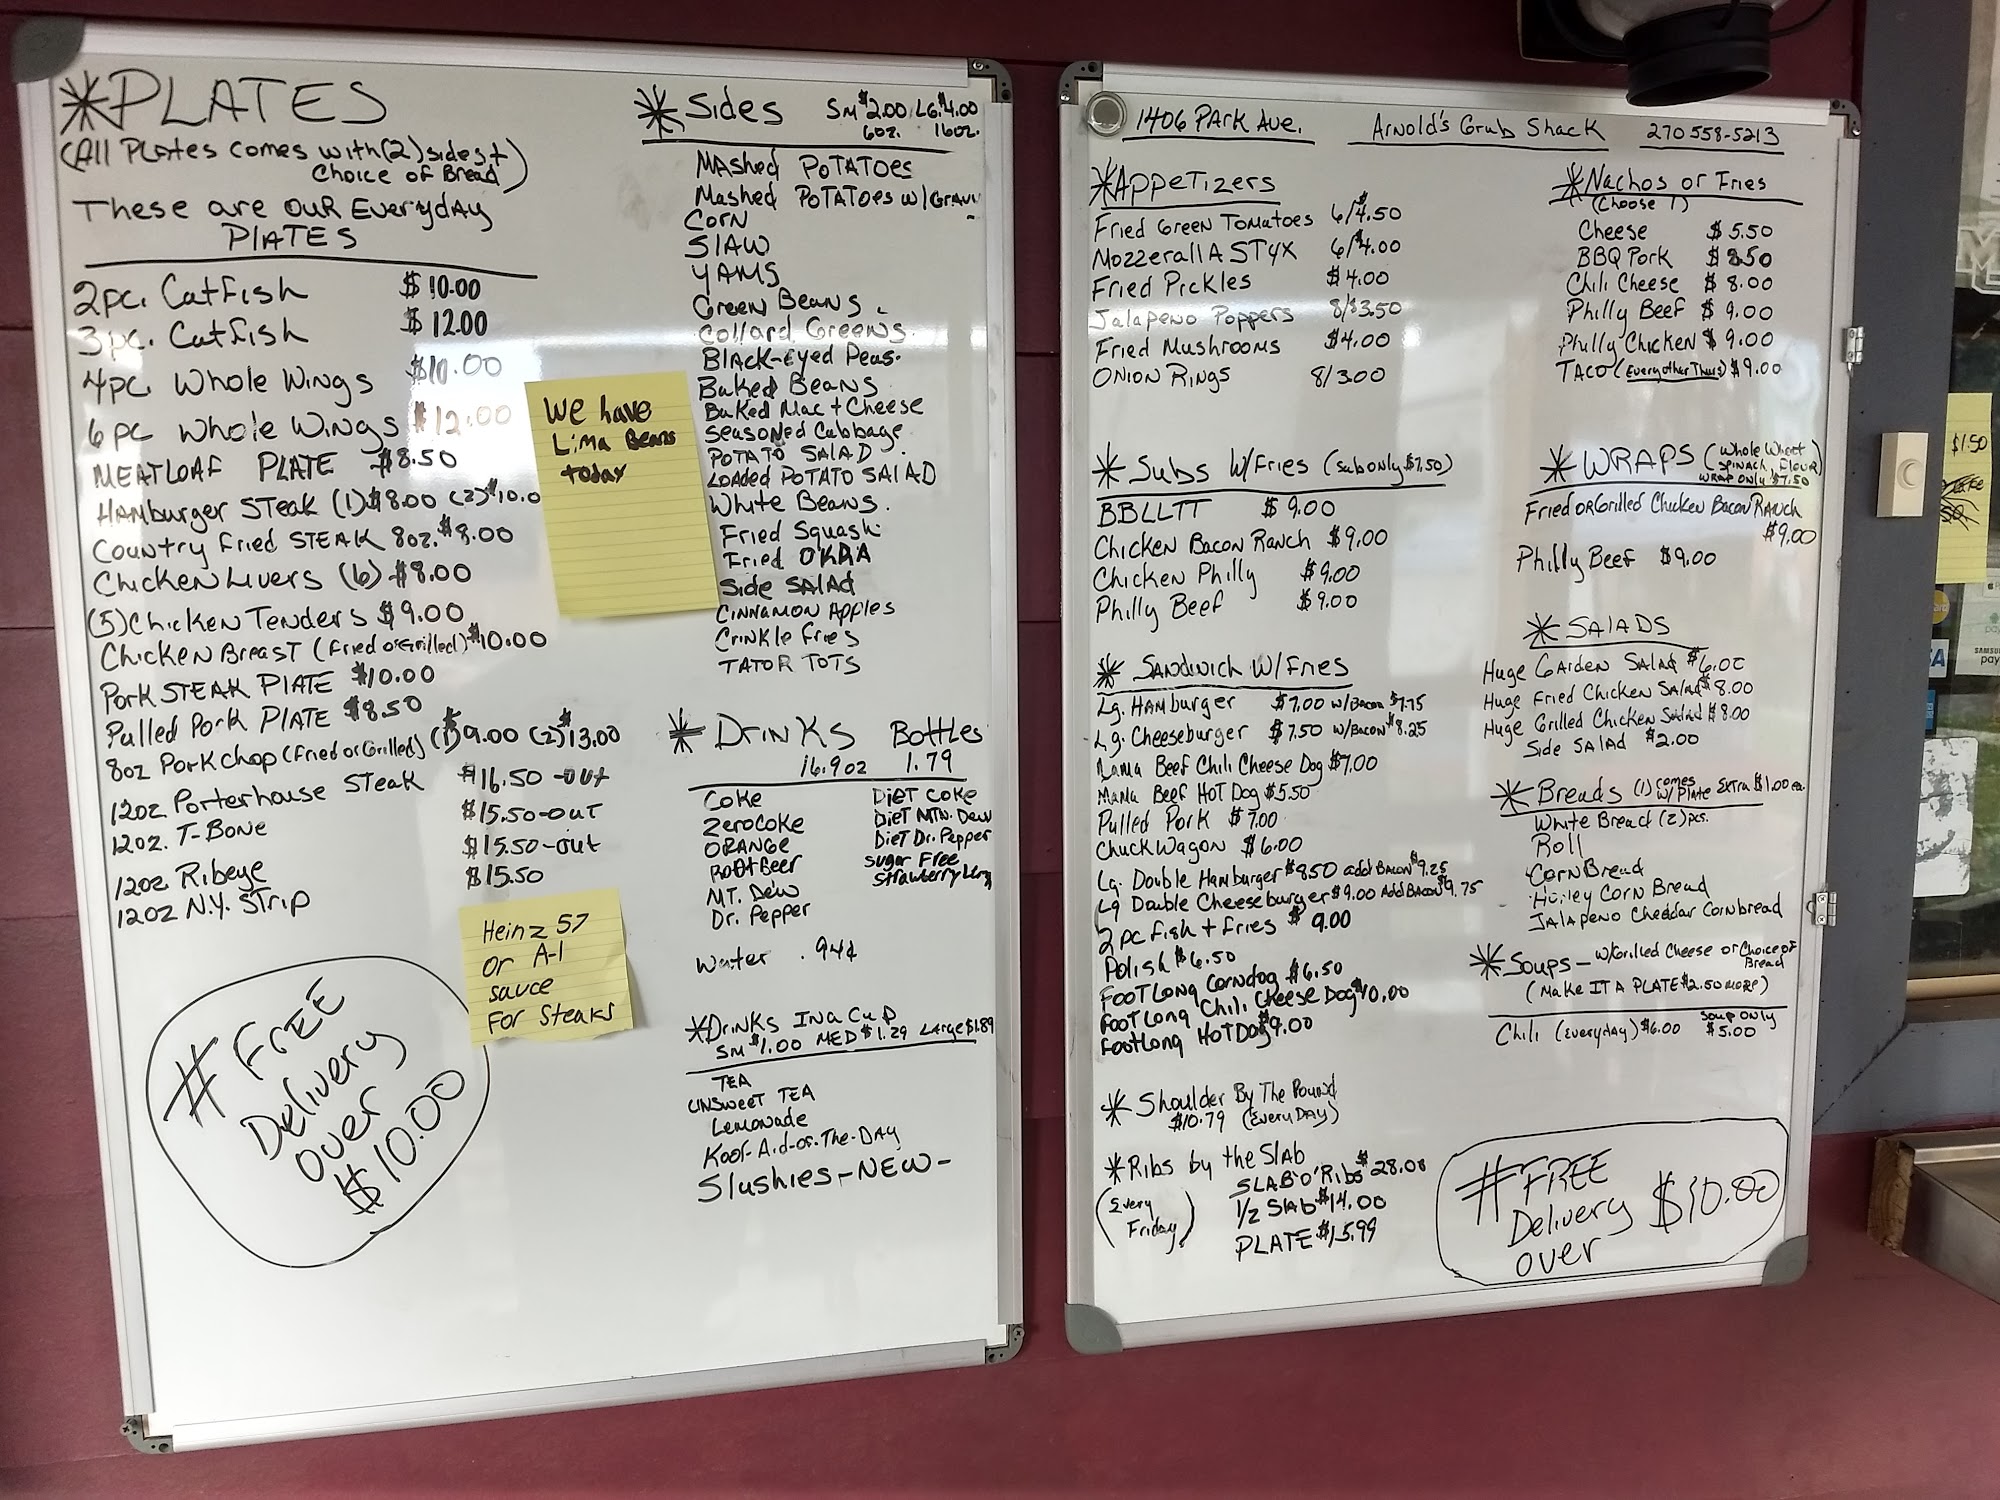 *PLATES
(All Plates comes with (2) sides +
Choice of Bread)
These are OUR Everyday
PLATES
2pc. Catfish $10.00
3pc. Catfish $12.00
4pc. Whole Wings $10.00
6pc Whole Wings $12.00
MEATLOAF PLATE $8.50
Hamburger STeak (1)$8.00 (2)$10.0
Country Fried STEAK 8oz. $8.00
Chicken Livers (6) $8.00
(5) Chicken Tenders $9.00
Chicken Breast (Fried or Grilled) $10.00
Pork STEAK PLATE $10.00
Pulled Pork PLATE $8.50
8oz Pork chop (Fried or Grilled) (1)$9.00 (2)$13.00
12oz Porterhouse Steak $16.50 -out
12oz. T-Bone $15.50-out
12oz. Ribeye $15.50-out
12oz N.Y. STrip $15.50
#FREE
Delivery
over
$10.00
We have
Lima Beans
today
Heinz 57
or A-1
sauce
For Steaks
*Sides SM $2.00 LG. $4.00
6oz. 16oz.
MAshed PoTATOes
Mashed PoTATOes w/Gravy
CORN
SlAW
YAMS
Green Beans.
Collard Greens.
BlAck-Eyed Peas.
Baked Beans
Baked Mac + Cheese
Seasoned Cabbage
POTATO SALAD.
LOADED POTATO SALAD
White Beans.
Fried Squash
Fried OKRA
Side SAlad
Cinnamon Apples
Crinkle Fries
TATOR TOTS
*Drinks Bottles
16.9oz 1.79
Coke
Zero Coke
ORANGE
Root Beer
MT. Dew
Dr. Pepper
DieT Coke
DieT MTN. Dew
DieT Dr. Pepper
Sugar Free
Water .94¢
*Drinks In a Cup
SM $1.00 MED $1.29 LARGE $1.89
TEA
UNSweeT TEA
Lemonade
Kool-Aid-of-The-DAY
Slushies-NEW-
1406 PArk Ave. Arnold's Grub Shack 270 558-5213
*Appetizers
Fried Green Tomatoes 6/$4.50
MozzerallA STYX 6/$4.00
Fried Pickles $4.00
Jalapeno Poppers 8/$3.50
Fried Mushrooms $4.00
ONION RINGS 8/3.00
*Subs w/Fries (sub only $7.50)
BBLLTT $9.00
Chicken Bacon Ranch $9.00
Chicken Philly $9.00
Philly Beef $9.00
*Sandwich w/Fries
Lg. HAmburger $7.00 w/Bacon $7.75
Lg. Cheeseburger $7.50 w/Bacon $8.25
Mama Beef Chili Cheese Dog $7.00
Mama Beef Hot Dog $5.50
Pulled Pork $7.00
Chuck Wagon $6.00
Lg. Double Hamburger $8.50 add Bacon $9.25
Lg Double Cheeseburger $9.00 Add Bacon $9.75
2pc fish + fries $9.00
Polish $6.50
FOOT Long Corndog $6.50
Foot Long Chili Cheese Dog $10.00
FootLong HOT Dog $9.00
*Shoulder By The Pound
$10.79 (Every DAY)
*Ribs by the SlAb
(Every
Friday)
SLAB O' Ribs $28.00
1/2 SlAb $14.00
PLATE $15.99
*Nachos or Fries
(Choose 1)
Cheese $5.50
BBQ Pork $8.50
Chili Cheese $8.00
Philly Beef $9.00
Philly Chicken $9.00
TACO (Every other Thurs) $9.00
*WRAPS (Whole Wheat
Spinach, Flour)
Wrap only $7.50
Fried OR Grilled Chicken Bacon Ranch
$9.00
Philly Beef $9.00
*SAlADS
Huge GArden Salad $6.00
Huge Fried Chicken Salad $8.00
Huge Grilled Chicken Salad $8.00
Side SAlad $2.00
*Breads (1) comes w/Plate Extra $1.00 ea.
White Bread (2) pcs.
Roll
Corn Bread
Honey Corn Bread
JAlApeno Cheddar Cornbread
*Soups - w/Grilled Cheese or Choice of
Bread
(Make IT A PLATE $2.50 more)
Chili (Everyday) $6.00 Soup Only $5.00
#FREE
Delivery
over
$10.00
$1.50